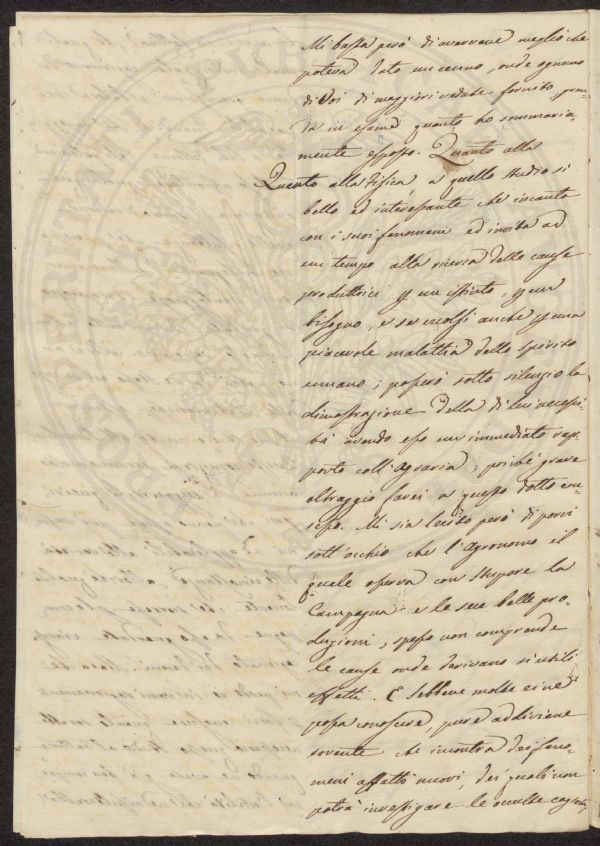 Mi basta però di avervene meglio che
poteva dato un cenno, onde ognuno
di Voi di maggiori vedute fornito pren-
da in esame quanto ho sommaria-
mente esposto. Quanto alla
Quanto alla Fisica, a quello studio sì
bello ed interessante che incanta
con i suoi fenomeni ed invita ad
un tempo alla ricerca delle cause
produttrici p un istinto, p un
bisogno, e se vuolsi anche p una
piacevole malattia dello spirito
umano; passerò sotto silenzio la
dimostrazione della di lei necessi-
tà avendo essa un immediato rap-
porto coll'Agraria; poiché grave
oltraggio farei a questo dotto con-
sesso. Mi sia lecito però di porvi
sott'occhio che l'Agronomo il
quale osserva con stupore la
Campagna e le sue belle pro-
duzioni, spesso non comprende
le cause onde derivano sì utili
effetti. E sebbene molte ei ne
possa conoscere, pure addiviene
sovente che incontra dei feno-
meni affatto nuovi, dei quali non
potrà investigare le occulte cagioni